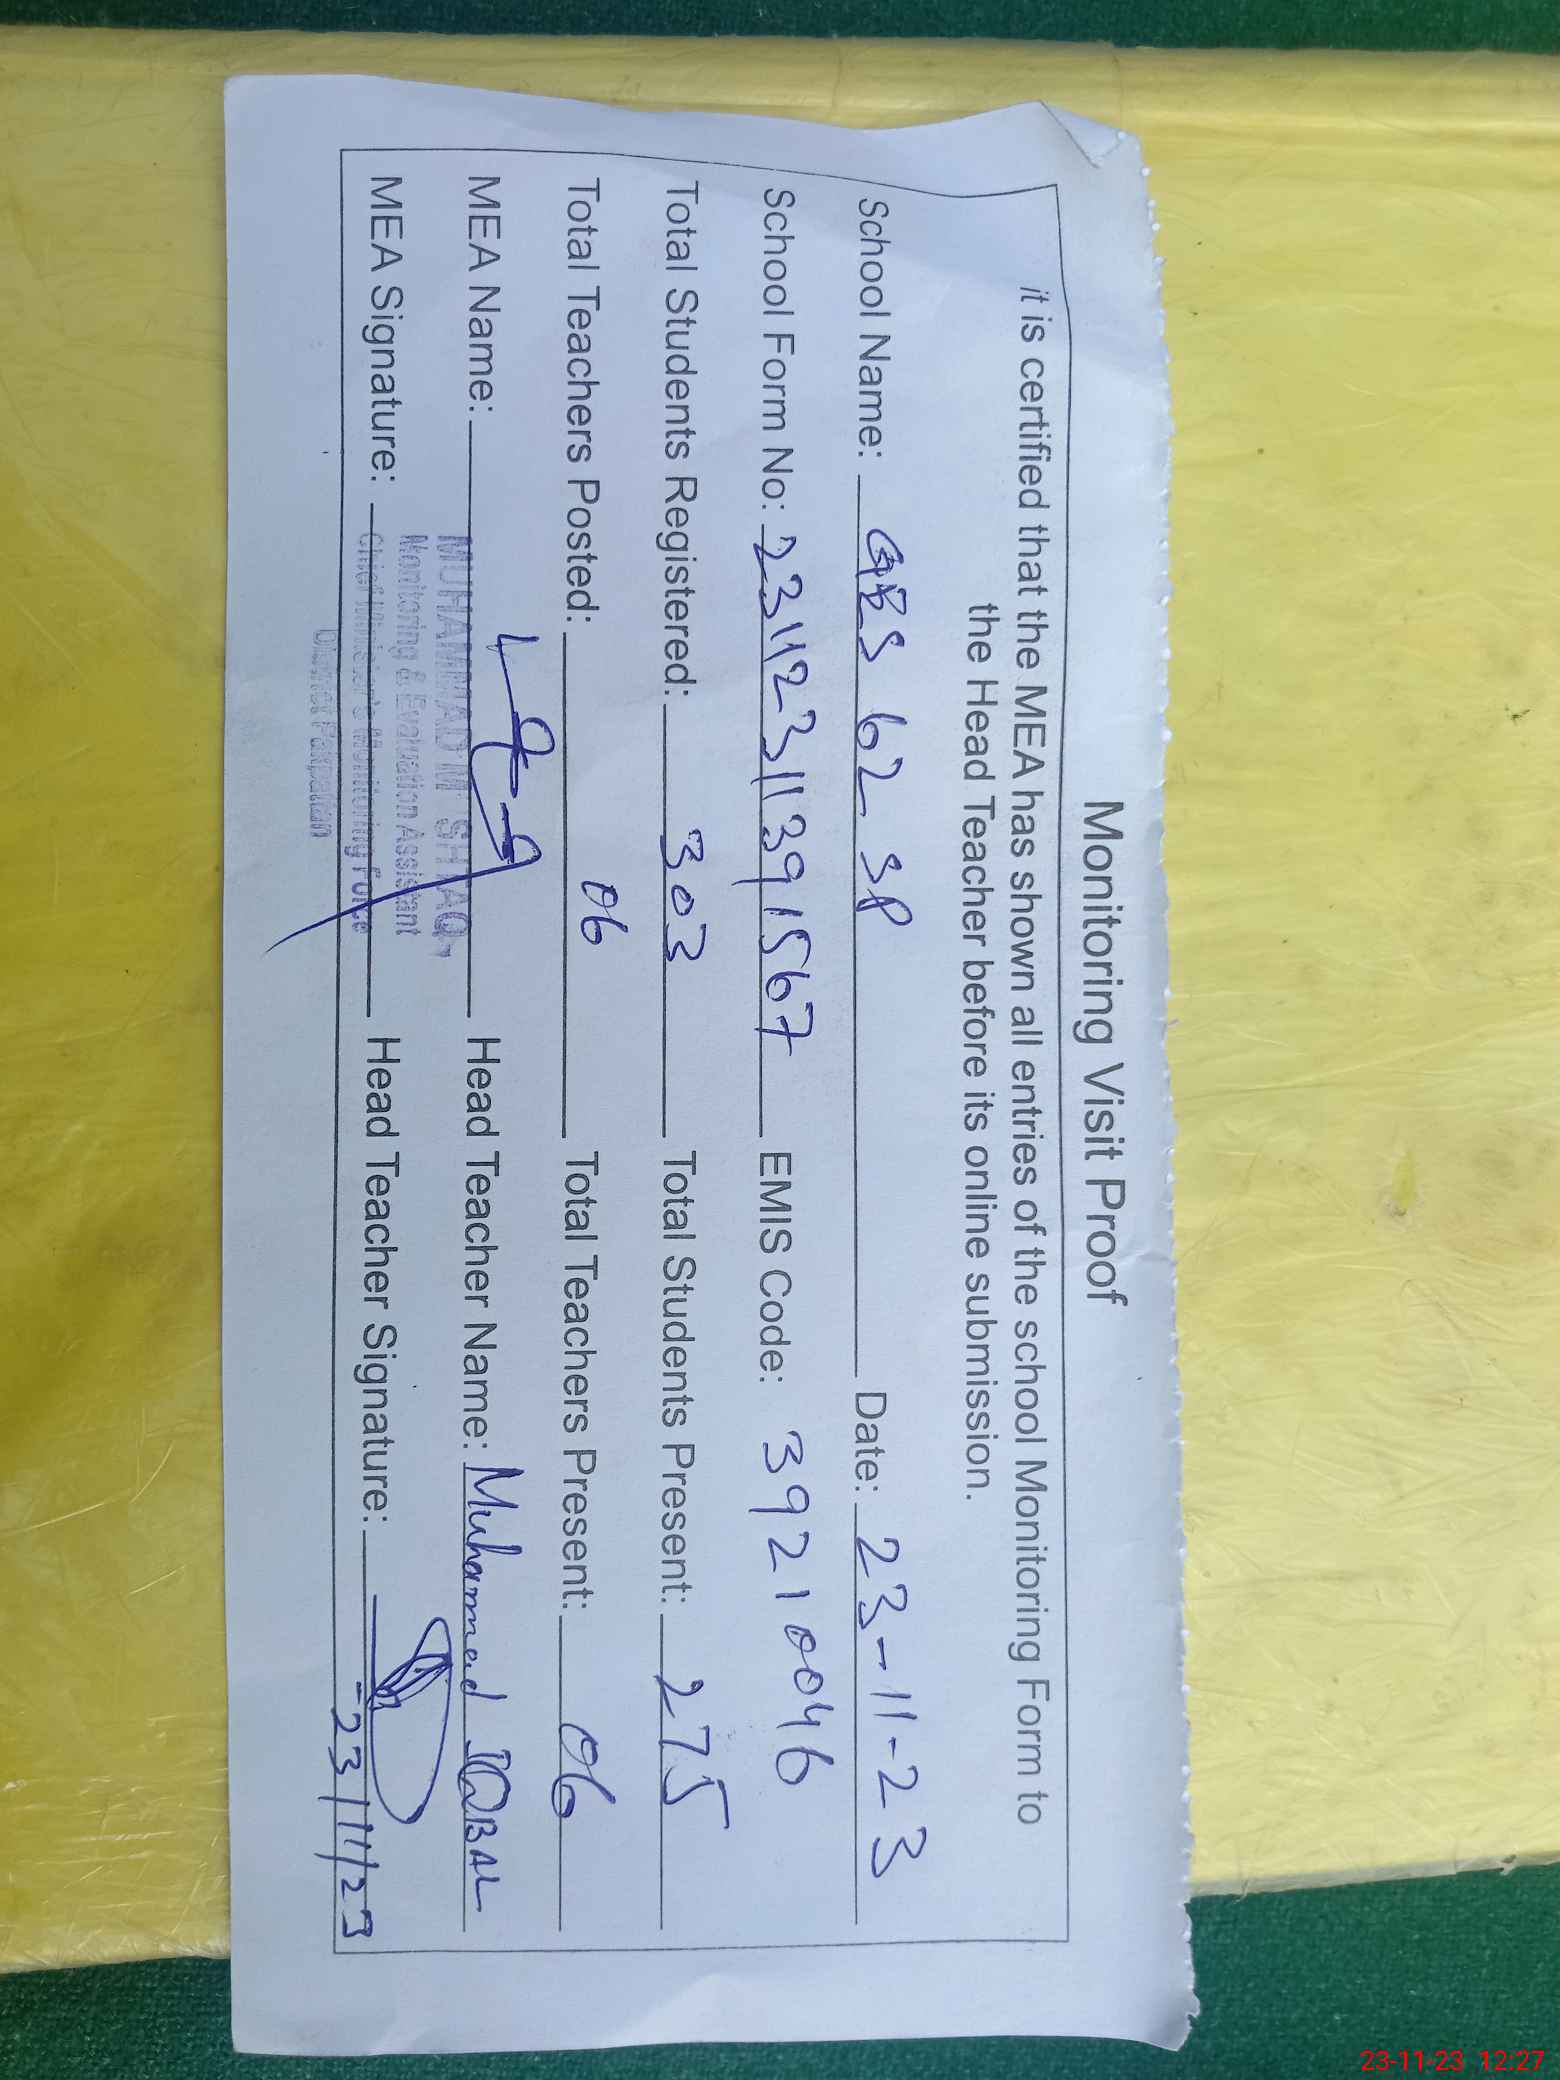 Monitoring Visit Proof
it is certified that the MEA has shown all entries of the school Monitoring Form to
the Head Teacher before its online submission.
School Name: 62 SP Date: 23-11-23
School Form No: 23112311391567 EMIS Code: 39210046
Total Students Registered: 303 Total Students Present: 275
Total Teachers Posted: 06 Total Teachers Present: 06
MEA Name: Head Teacher Name: Muhammad IQBAL
MUHAMMAD
Monitoring & Evaluation Assistant
MEA Signature: Head Teacher Signature:
Chief Minister's Monitoring Force
23/11/23
District Pakpattan
23-11-23 12:27